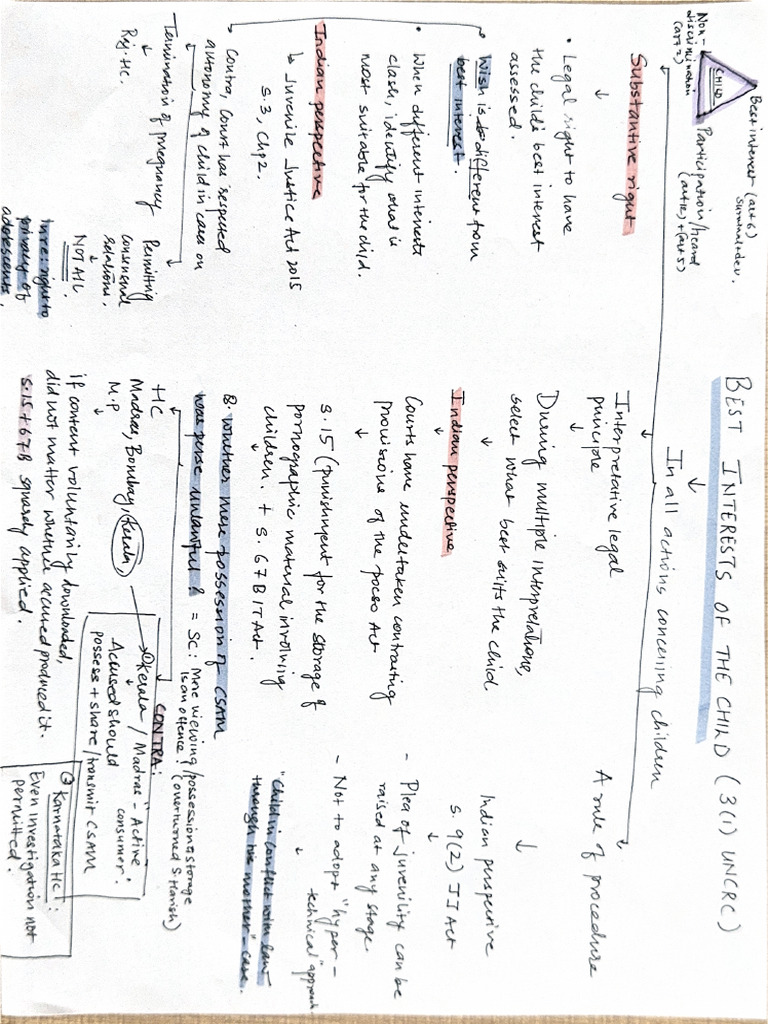 BEST INTERESTS OF THE CHILD (3(1) UNCRC)
In all actions concerning children
Best interest (art 6)
survival + dev.
CHILD
Non-
discrimination
(art 2)
Participation/heard
(art 12) + (art 5)
Substantive right
• Legal right to have
the child's best interest
assessed.
Wish is different from
best interest.
• When different interests
clash, identify what is
most suitable for the child.
Indian perspective
↳ Juvenile Justice Act 2015
S.3, Chp 2.
• Contra, Court has respected
autonomy of child in cases on
Termination of pregnancy
Raj. HC.
Permitting
consensual
relations.
NOT ALL.
In re: right to
privacy of
adolescents.
Interpretative legal
principle
During multiple interpretations,
select what best suits the child
Indian perspective
Courts have undertaken contrasting
provisions of the POCSO Act
S.15 (punishment for the storage of
pornographic material involving
children. + S.67B IT Act.
Q. whether mere possession of CSAM
was per se unlawful?
= SC: Mere viewing/possession & storage
is an offence! (overturned S. Harish)
HC
Madras, Bombay, Kerala,
M.P
if content voluntarily downloaded,
did not matter whether accused produced it.
S.15 + 67B squarely applied.
CONTRA:
① Kerala / Madras - "Active
consumer".
Accused should
possess + share/transmit CSAM
② Karnataka HC:
Even investigation not
permitted.
A rule of procedure
Indian perspective
S. 9(2) JJ Act
- Plea of juvenility can be
raised at any stage.
- Not to adopt "hyper-
technical" approach
"Child in conflict with law
through his mother" - case.